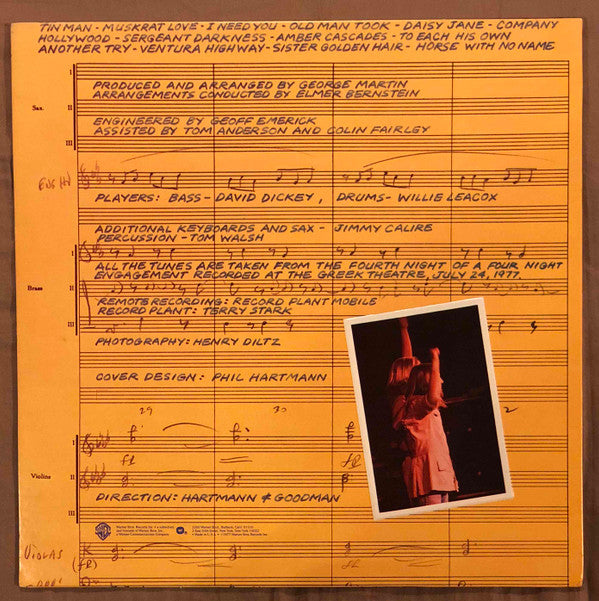 TIN MAN - MUSKRAT LOVE - I NEED YOU - OLD MAN TOOK - DAISY JANE - COMPANY
HOLLYWOOD - SERGEANT DARKNESS - AMBER CASCADES - TO EACH HIS OWN
ANOTHER TRY - VENTURA HIGHWAY - SISTER GOLDEN HAIR - HORSE WITH NO NAME
I
PRODUCED AND ARRANGED BY GEORGE MARTIN
ARRANGEMENTS CONDUCTED BY ELMER BERNSTEIN
Sax.
II
ENGINEERED BY GEOFF EMERICK
ASSISTED BY TOM ANDERSON AND COLIN FAIRLEY
III
ENG HN
PLAYERS: BASS - DAVID DICKEY, DRUMS - WILLIE LEACOX
ADDITIONAL KEYBOARDS AND SAX - JIMMY CALIRE
PERCUSSION - TOM WALSH
I
ALL THE TUNES ARE TAKEN FROM THE FOURTH NIGHT OF A FOUR NIGHT
ENGAGEMENT RECORDED AT THE GREEK THEATRE, JULY 24, 1977.
Brass
II
REMOTE RECORDING: RECORD PLANT MOBILE
RECORD PLANT: TERRY STARK
III
PHOTOGRAPHY: HENRY DILTZ
COVER DESIGN: PHIL HARTMANN
29 30 2
I
ff ff
Violins
II
DIRECTION: HARTMANN & GOODMAN
III
WB
VIOLAS
(ff)